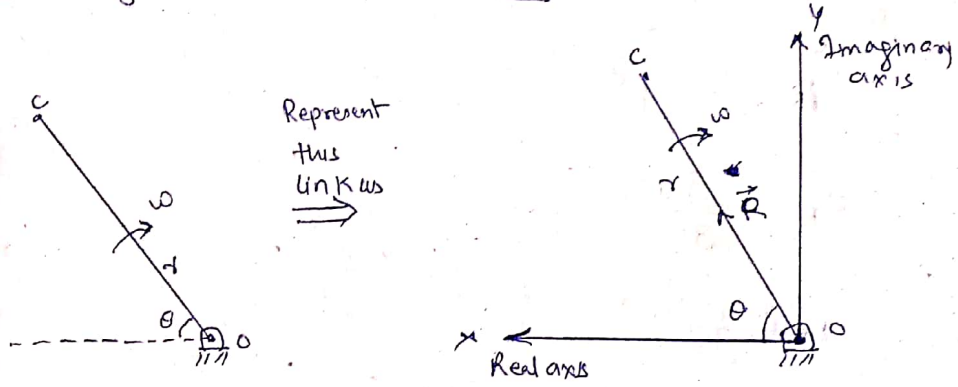 C
ω
r
θ
O
Represent
this
link as
⇒
C
ω
r
R⃗
θ
O
Y
Imaginary
axis
X
Real axis